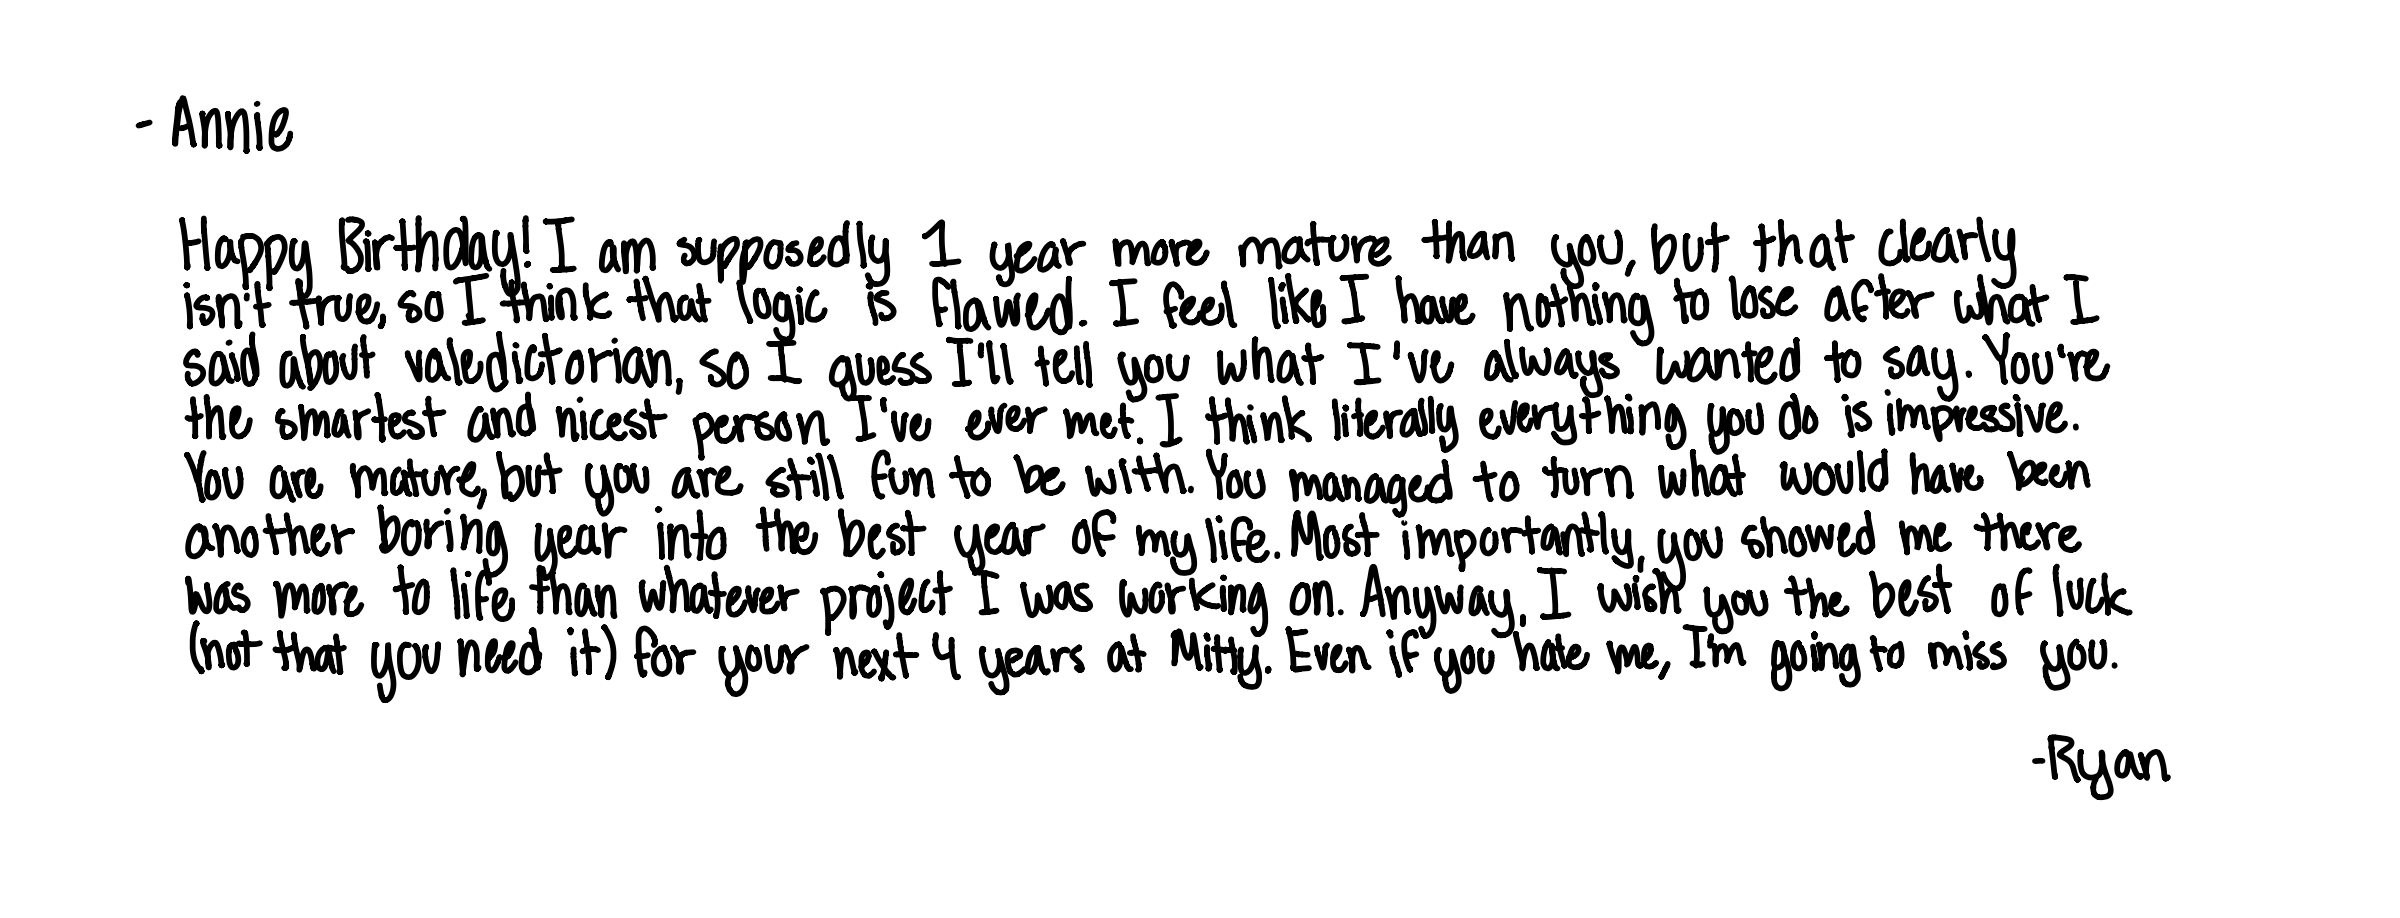 - Annie
Happy Birthday! I am supposedly 1 year more mature than you, but that clearly
isn't true, so I think that logic is flawed. I feel like I have nothing to lose after what I
said about valedictorian, so I guess I'll tell you what I've always wanted to say. You're
the smartest and nicest person I've ever met. I think literally everything you do is impressive.
You are mature, but you are still fun to be with. You managed to turn what would have been
another boring year into the best year of my life. Most importantly, you showed me there
was more to life than whatever project I was working on. Anyway, I wish you the best of luck
(not that you need it) for your next 4 years at Mitty. Even if you hate me, I'm going to miss you.
-Ryan